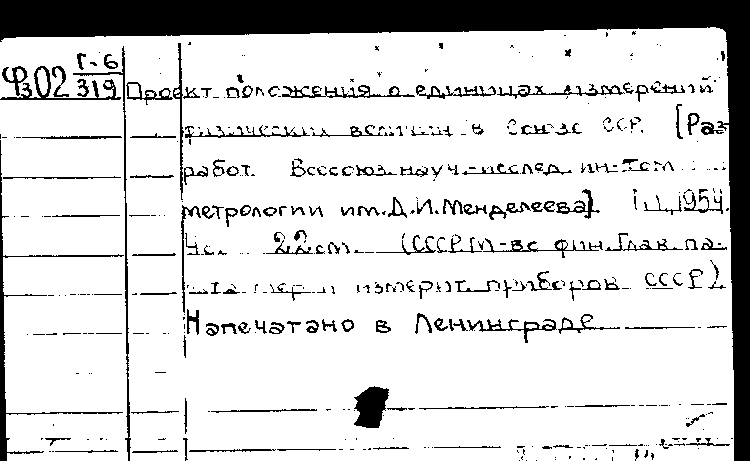 Ф302 Г-6
319
Проект положения о единицах измерений
физических величин в Союзе ССР. [Раз-
работ. Всесоюз. науч.-исслед. ин-том
метрологии им. Д.И. Менделеева]. 1954.
4с. 22см. (СССР. М-во фин. Глав. па-
мер и измерит. приборов СССР).
Напечатано в Ленинграде.